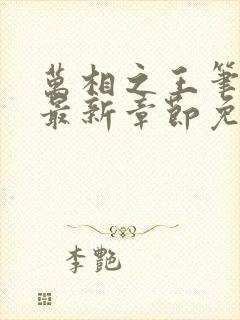 萬相之王筆
最新章節免
李艷